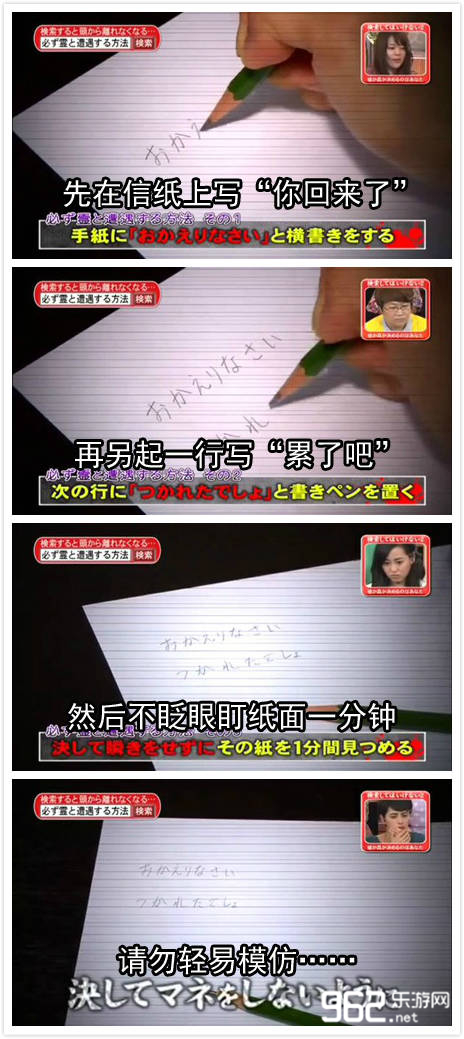 検索すると頭から離れなくなる…
必ず霊と遭遇する方法 検索
検索してはいけない!!
おかえ
先在信纸上写“你回来了”
必ず霊と遭遇する方法 その1
手紙に「おかえりなさい」と横書きをする
検索すると頭から離れなくなる…
必ず霊と遭遇する方法 検索
検索してはいけない!!
おかえりなさい
つかれ
再另起一行写“累了吧”
必ず霊と遭遇する方法 その2
次の行に「つかれたでしょ」と書きペンを置く
検索すると頭から離れなくなる…
必ず霊と遭遇する方法 検索
検索してはいけない!!
おかえりなさい
つかれたでしょ
然后不眨眼盯纸面一分钟
決して瞬きをせずにその紙を1分間見つめる
検索すると頭から離れなくなる…
必ず霊と遭遇する方法 検索
検索してはいけない!!
おかえりなさい
つかれたでしょ
请勿轻易模仿……
決してマネをしないように
962乐游网
.net